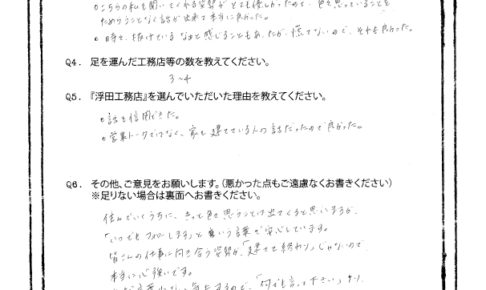 ・こちらの私も聞いてくれる姿勢がとても優しかったので、色々思っていることを
ためらうことなく話が出来て本当に良かった。
・時々、抜けているなあと感じることもあったが、慌てないので、それも良かった。
Q4. 足を運んだ工務店等の数を教えてください。
3〜4
Q5. 『浮田工務店』を選んでいただいた理由を教えてください。
・話を信用できた。
・営業トークではなく、家を建てている人の話だったので良かった。
Q6. その他、ご意見をお願いします。（悪かった点もご遠慮なくお書きください）
※足りない場合は裏面へお書きください。
住んでいくうちに、きっと色々思うことは出てくると思いますが、
「いつでもフォローします」と言う言葉で安心しています。
皆さんの仕事に向き合う姿勢が、「建てて終わり」じゃないので、
本当に心強いです。
「何でも言って下さい」